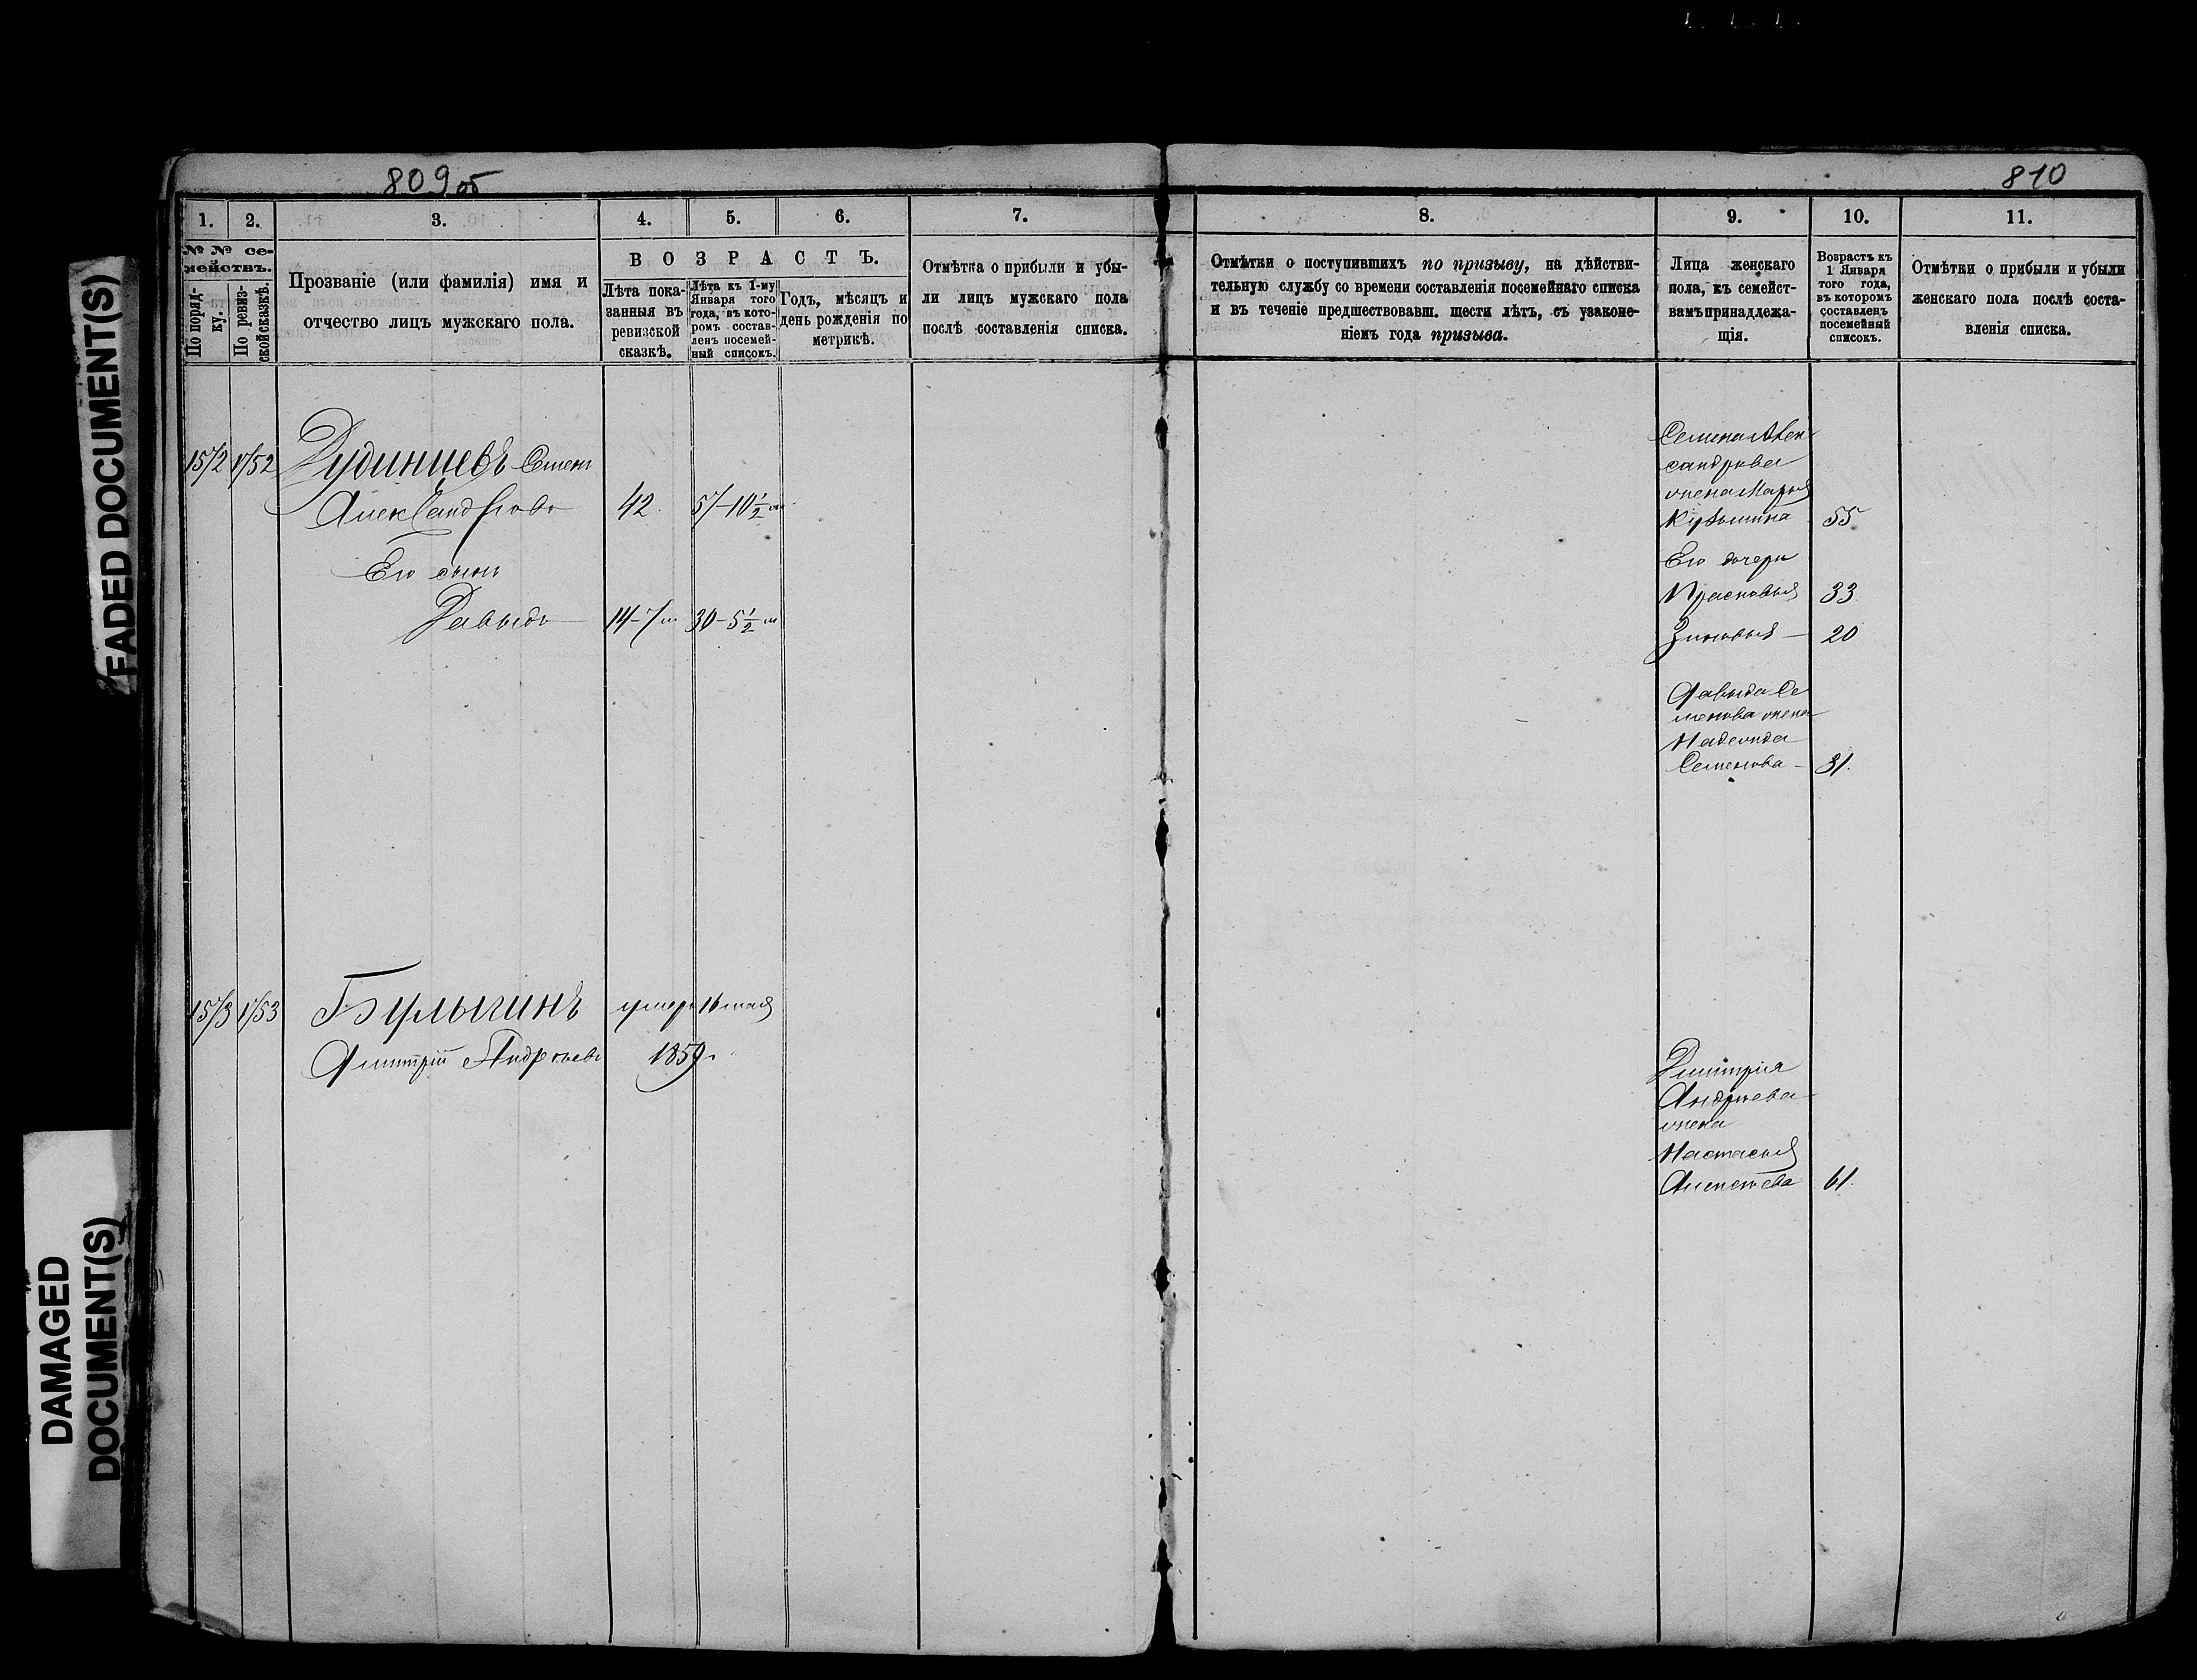 809об
810
1.
2.
3.
4.
5.
6.
7.
8.
9.
10.
11.
№ № се-
мействъ.
По поряд-
ку.
По ревиз-
ской сказкѣ.
Прозваніе (или фамилія) имя и
отчество лицъ мужскаго пола.
ВОЗРАСТЪ.
Лѣта пока-
занныя въ
ревизской
сказкѣ.
Лѣта къ 1-му
Января того
года, въ кото-
ромъ состав-
ленъ посемей-
ный списокъ.
Годъ, мѣсяцъ и
день рожденія по
метрикѣ.
Отмѣтка о прибыли и убы-
ли лицъ мужскаго пола
послѣ составленія списка.
Отмѣтки о поступившихъ по призыву, на дѣйстви-
тельную службу со времени составленія посемейнаго списка
и въ теченіе предшествовавш. шести лѣтъ, съ узаконе-
ніемъ года призыва.
Лица женскаго
пола, къ семейст-
вамъ принадлежа-
щія.
Возрастъ къ
1 Января
того года,
въ которомъ
составленъ
посемейный
списокъ.
Отмѣтки о прибыли и убыли
женскаго пола послѣ соста-
вленія списка.
Семенъ
Александровъ 42
Его сынъ
Давыдъ 14-7м 30-5½м
Семена Алек
сандрова
жена Марья
Кузьмина 55
Его дочери
Прасковья 33
Зиновья 20
Давыда Се
менова жена
Надежда
Семенова 31.
Булыгинъ умеръ 16 мая
Дмитрій Андреевъ 1859г.
Дмитрія
Андреева
жена
Настасья
61.
FADED DOCUMENT(S)
DAMAGED
DOCUMENT(S)